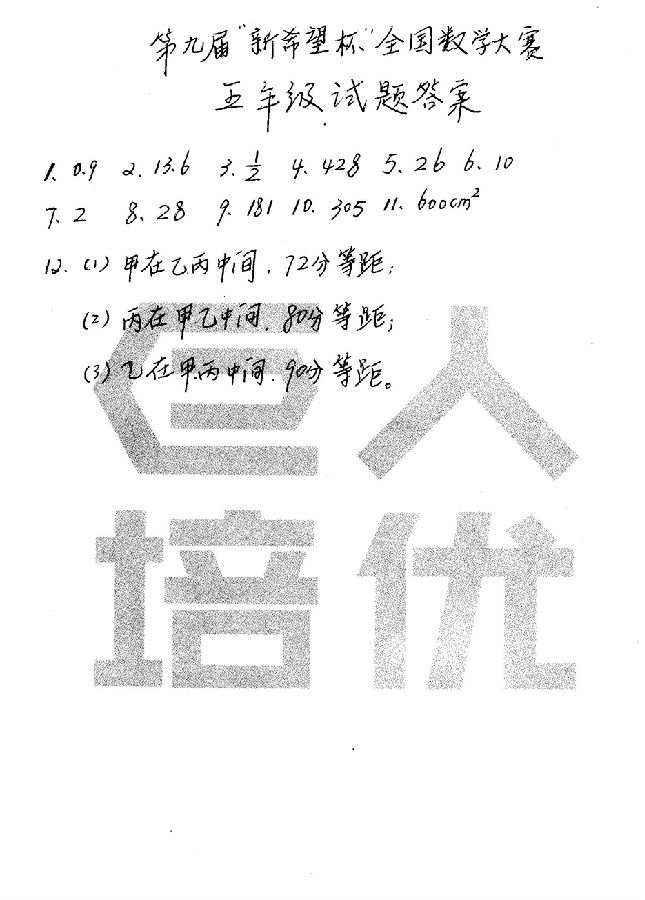 第九届"新希望杯"全国数学大赛
五年级试题答案
1、0.9 2、13.6 3、1/2 4、428 5、26 6、10
7、2 8、28 9、181 10、305 11、600cm²
12、(1) 甲在乙丙中间，72分等距；
(2) 丙在甲乙中间，80分等距；
(3) 乙在甲丙中间，90分等距。
巨人
培优